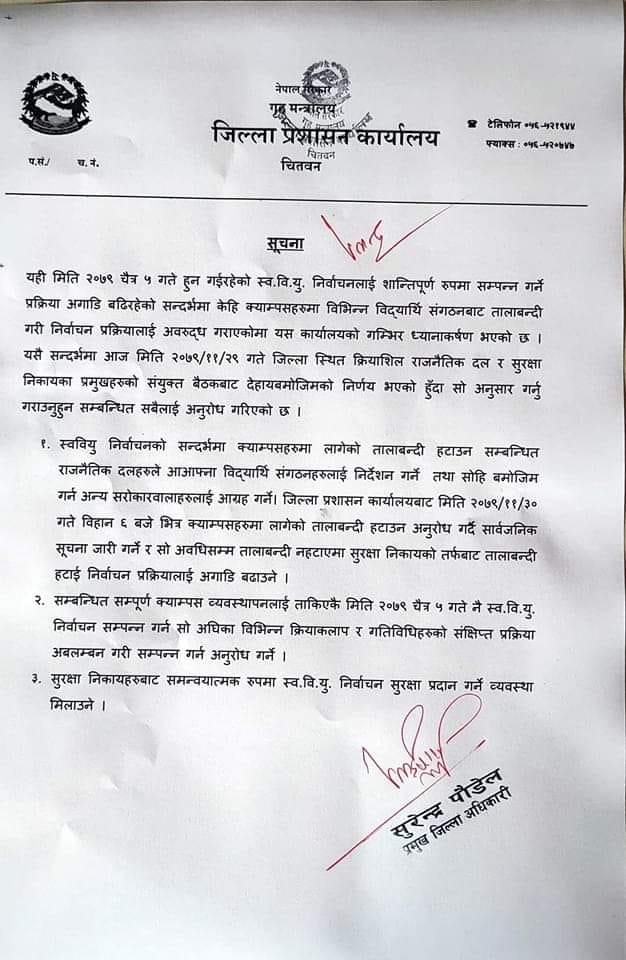 नेपाल सरकार
गृह मन्त्रालय
जिल्ला प्रशासन कार्यालय
चितवन
☎ टेलिफोन ०५६-५२१९४४
फ्याक्स : ०५६-५२०७४७
प.सं./ च.नं.
सूचना
यही मिति २०७९ चैत्र ५ गते हुन गईरहेको स्व.वि.यु. निर्वाचनलाई शान्तिपूर्ण रुपमा सम्पन्न गर्ने
प्रक्रिया अगाडि बढिरहेको सन्दर्भमा केहि क्याम्पसहरुमा विभिन्न विद्यार्थि संगठनबाट तालाबन्दी
गरी निर्वाचन प्रक्रियालाई अवरुद्ध गराएकोमा यस कार्यालयको गम्भिर ध्यानाकर्षण भएको छ ।
यसै सन्दर्भमा आज मिति २०७९/११/२९ गते जिल्ला स्थित क्रियाशिल राजनैतिक दल र सुरक्षा
निकायका प्रमुखहरुको संयुक्त बैठकबाट देहायबमोजिमको निर्णय भएको हुँदा सो अनुसार गर्नु
गराउनुहुन सम्बन्धित सबैलाई अनुरोध गरिएको छ ।
१. स्ववियु निर्वाचनको सन्दर्भमा क्याम्पसहरुमा लागेको तालाबन्दी हटाउन सम्बन्धित
राजनैतिक दलहरुले आआफ्ना विद्यार्थि संगठनहरुलाई निर्देशन गर्ने तथा सोहि बमोजिम
गर्न अन्य सरोकारवालाहरुलाई आग्रह गर्ने। जिल्ला प्रशासन कार्यालयबाट मिति २०७९/११/३०
गते विहान ६ बजे भित्र क्याम्पसहरुमा लागेको तालाबन्दी हटाउन अनुरोध गर्दै सार्वजनिक
सूचना जारी गर्ने र सो अवधिसम्म तालाबन्दी नहटाएमा सुरक्षा निकायको तर्फबाट तालाबन्दी
हटाई निर्वाचन प्रक्रियालाई अगाडि बढाउने ।
२. सम्बन्धित सम्पूर्ण क्याम्पस व्यवस्थापनलाई ताकिएकै मिति २०७९ चैत्र ५ गते नै स्व.वि.यु.
निर्वाचन सम्पन्न गर्न सो अघिका विभिन्न क्रियाकलाप र गतिविधिहरुको संक्षिप्त प्रक्रिया
अबलम्बन गरी सम्पन्न गर्न अनुरोध गर्ने ।
३. सुरक्षा निकायहरुबाट समन्वयात्मक रुपमा स्व.वि.यु. निर्वाचन सुरक्षा प्रदान गर्ने व्यवस्था
मिलाउने ।
सुरेन्द्र पौडेल
प्रमुख जिल्ला अधिकारी